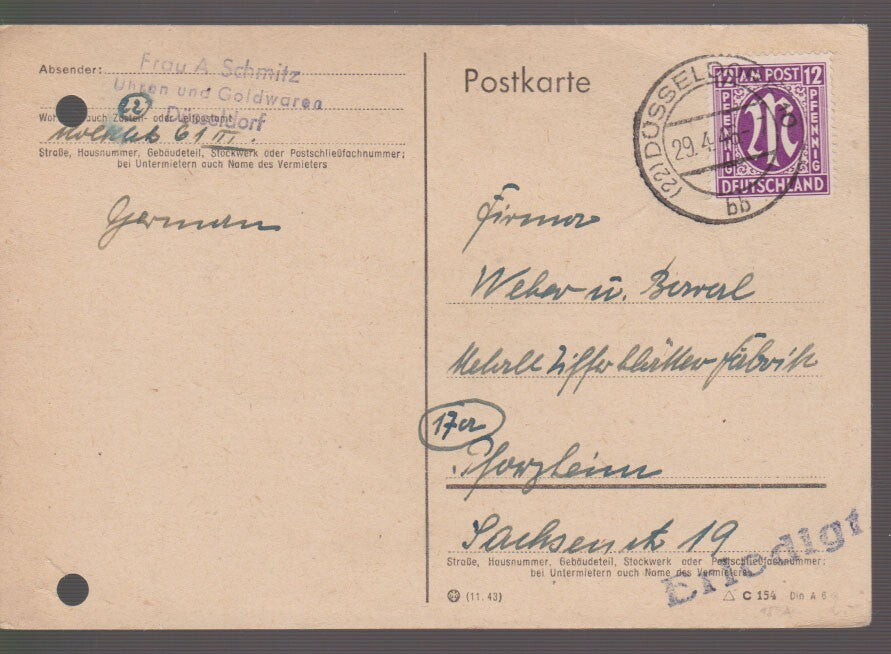 Absender:
Frau A. Schmitz
Uhren und Goldwaren
Düsseldorf
Wohnort, auch Zustell- oder Leitpostamt
61 III.
Straße, Hausnummer, Gebäudeteil, Stockwerk oder Postschließfachnummer;
bei Untermietern auch Name des Vermieters
German
Postkarte
(22) DÜSSELDO
29.4.46
bb
12 AM POST 12
PFENNIG
PFENNIG
M
DEUTSCHLAND
Firma
Weber u.
Metall Zifferblätter Fabrik
17a
Pforzheim
Sachsenstr 19
Straße, Hausnummer, Gebäudeteil, Stockwerk oder Postschließfachnummer;
bei Untermietern auch Name des Vermieters
Erledigt
(11. 43)
C 154 Din A 6